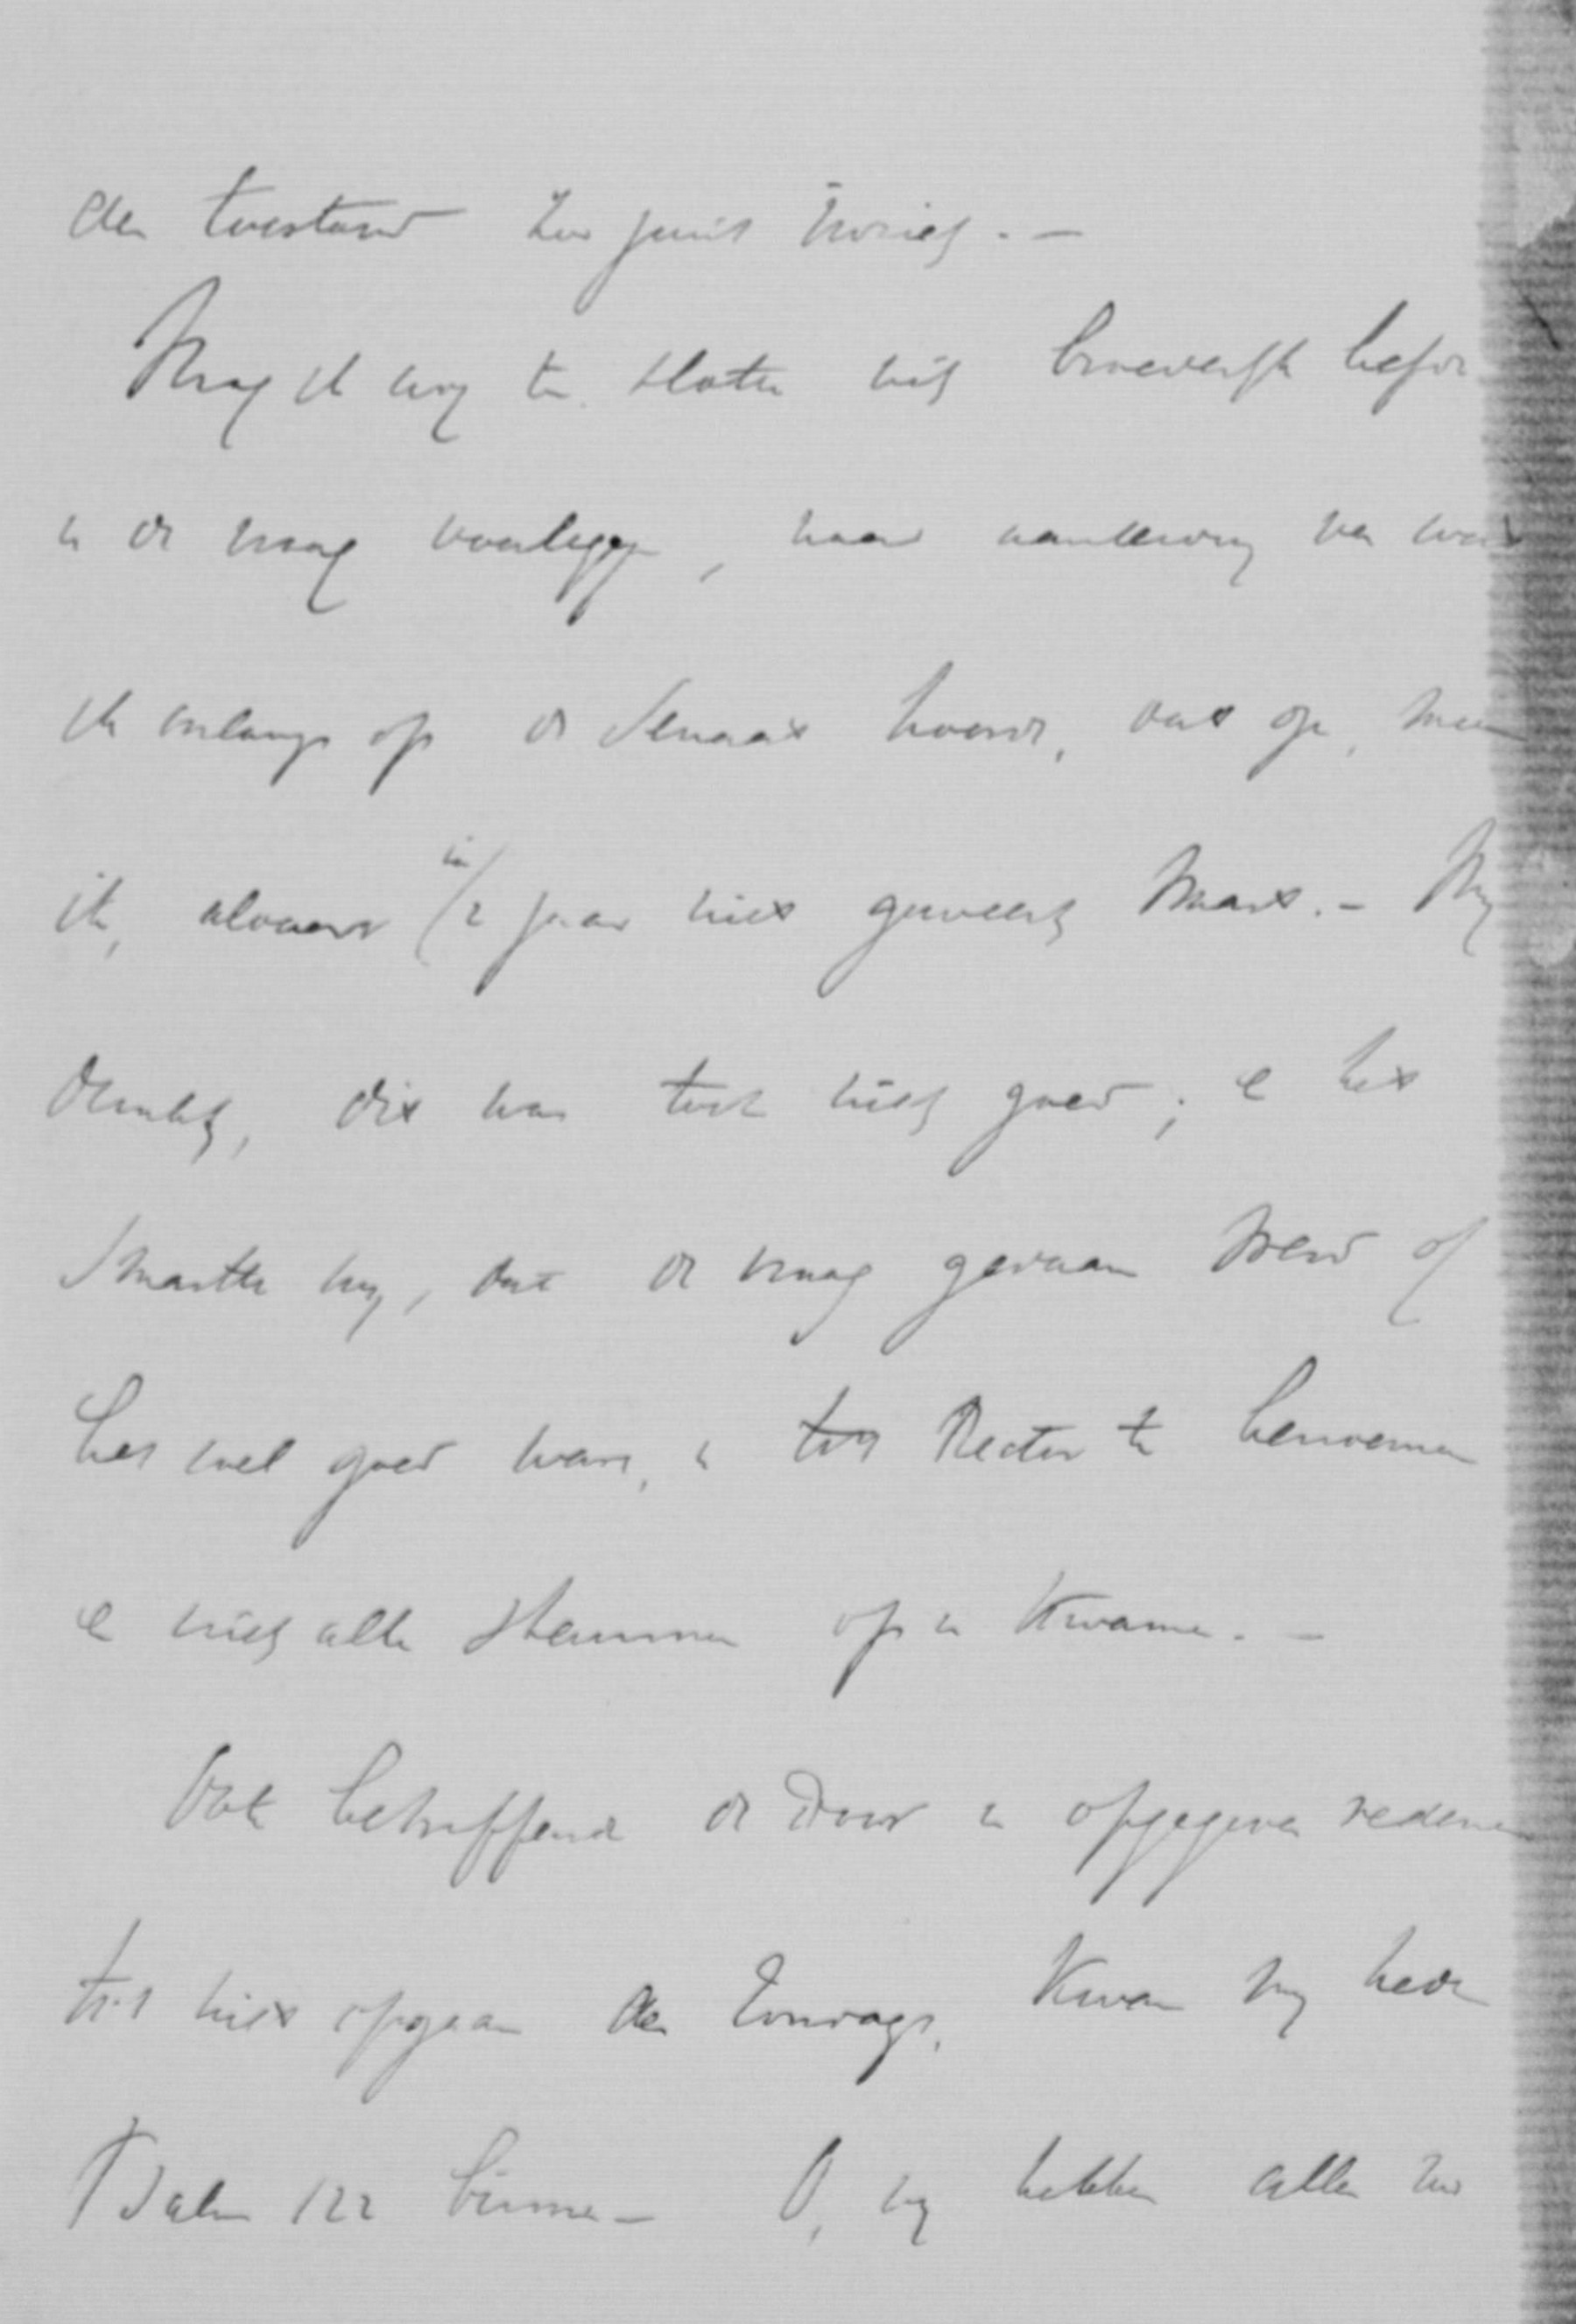 den toestand zoo juist inzieh. —
Mag ik nog ten slotte niet broederlijk
u de vraag voorleggen, naar aanleiding van wat
ik onlangs op de Senaat hoorde, dat ge, meen
ik, alvast in 1/2 jaar niet geweest waart. — My
dunkt, dit was toch niet goed; & het
smartte my, dat de vraag gedaan werd of
het wel goed ware, u tot Rector te benoemen
& niet alle stemmen op u kwamen. —
Ook betreffende de door u opgegeven redenen
tot niet opgaan des Zondags, kwam my heden
Psalm 122 binnen — O, wy hebben allen zoo